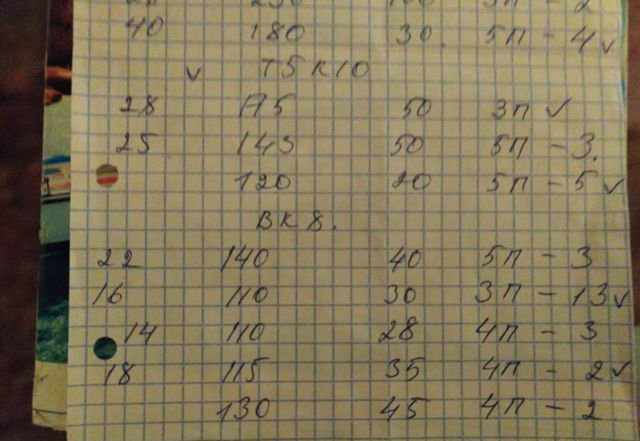 40 180 30 5П - 4 ✓
✓ Т5К10
28 50 3П ✓
25 145 50 5П - 3.
120 20 5П - 5 ✓
ВК8.
22 140 40 5П - 3
16 110 30 3П - 13 ✓
14 110 28 4П - 3
18 115 35 4П - 2 ✓
130 45 4П - 2